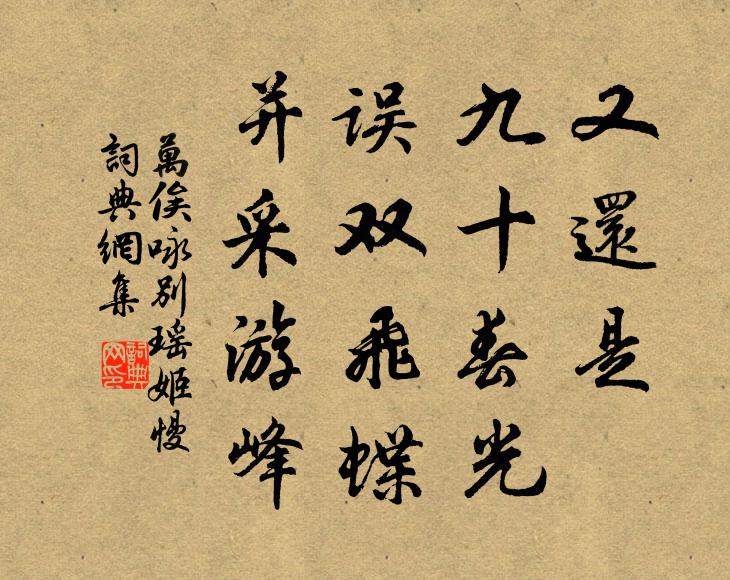 又還是
九十春光
误双飛蝶
并采游峰
萬俟咏别瑶姬慢
詞典網集
詞典网印